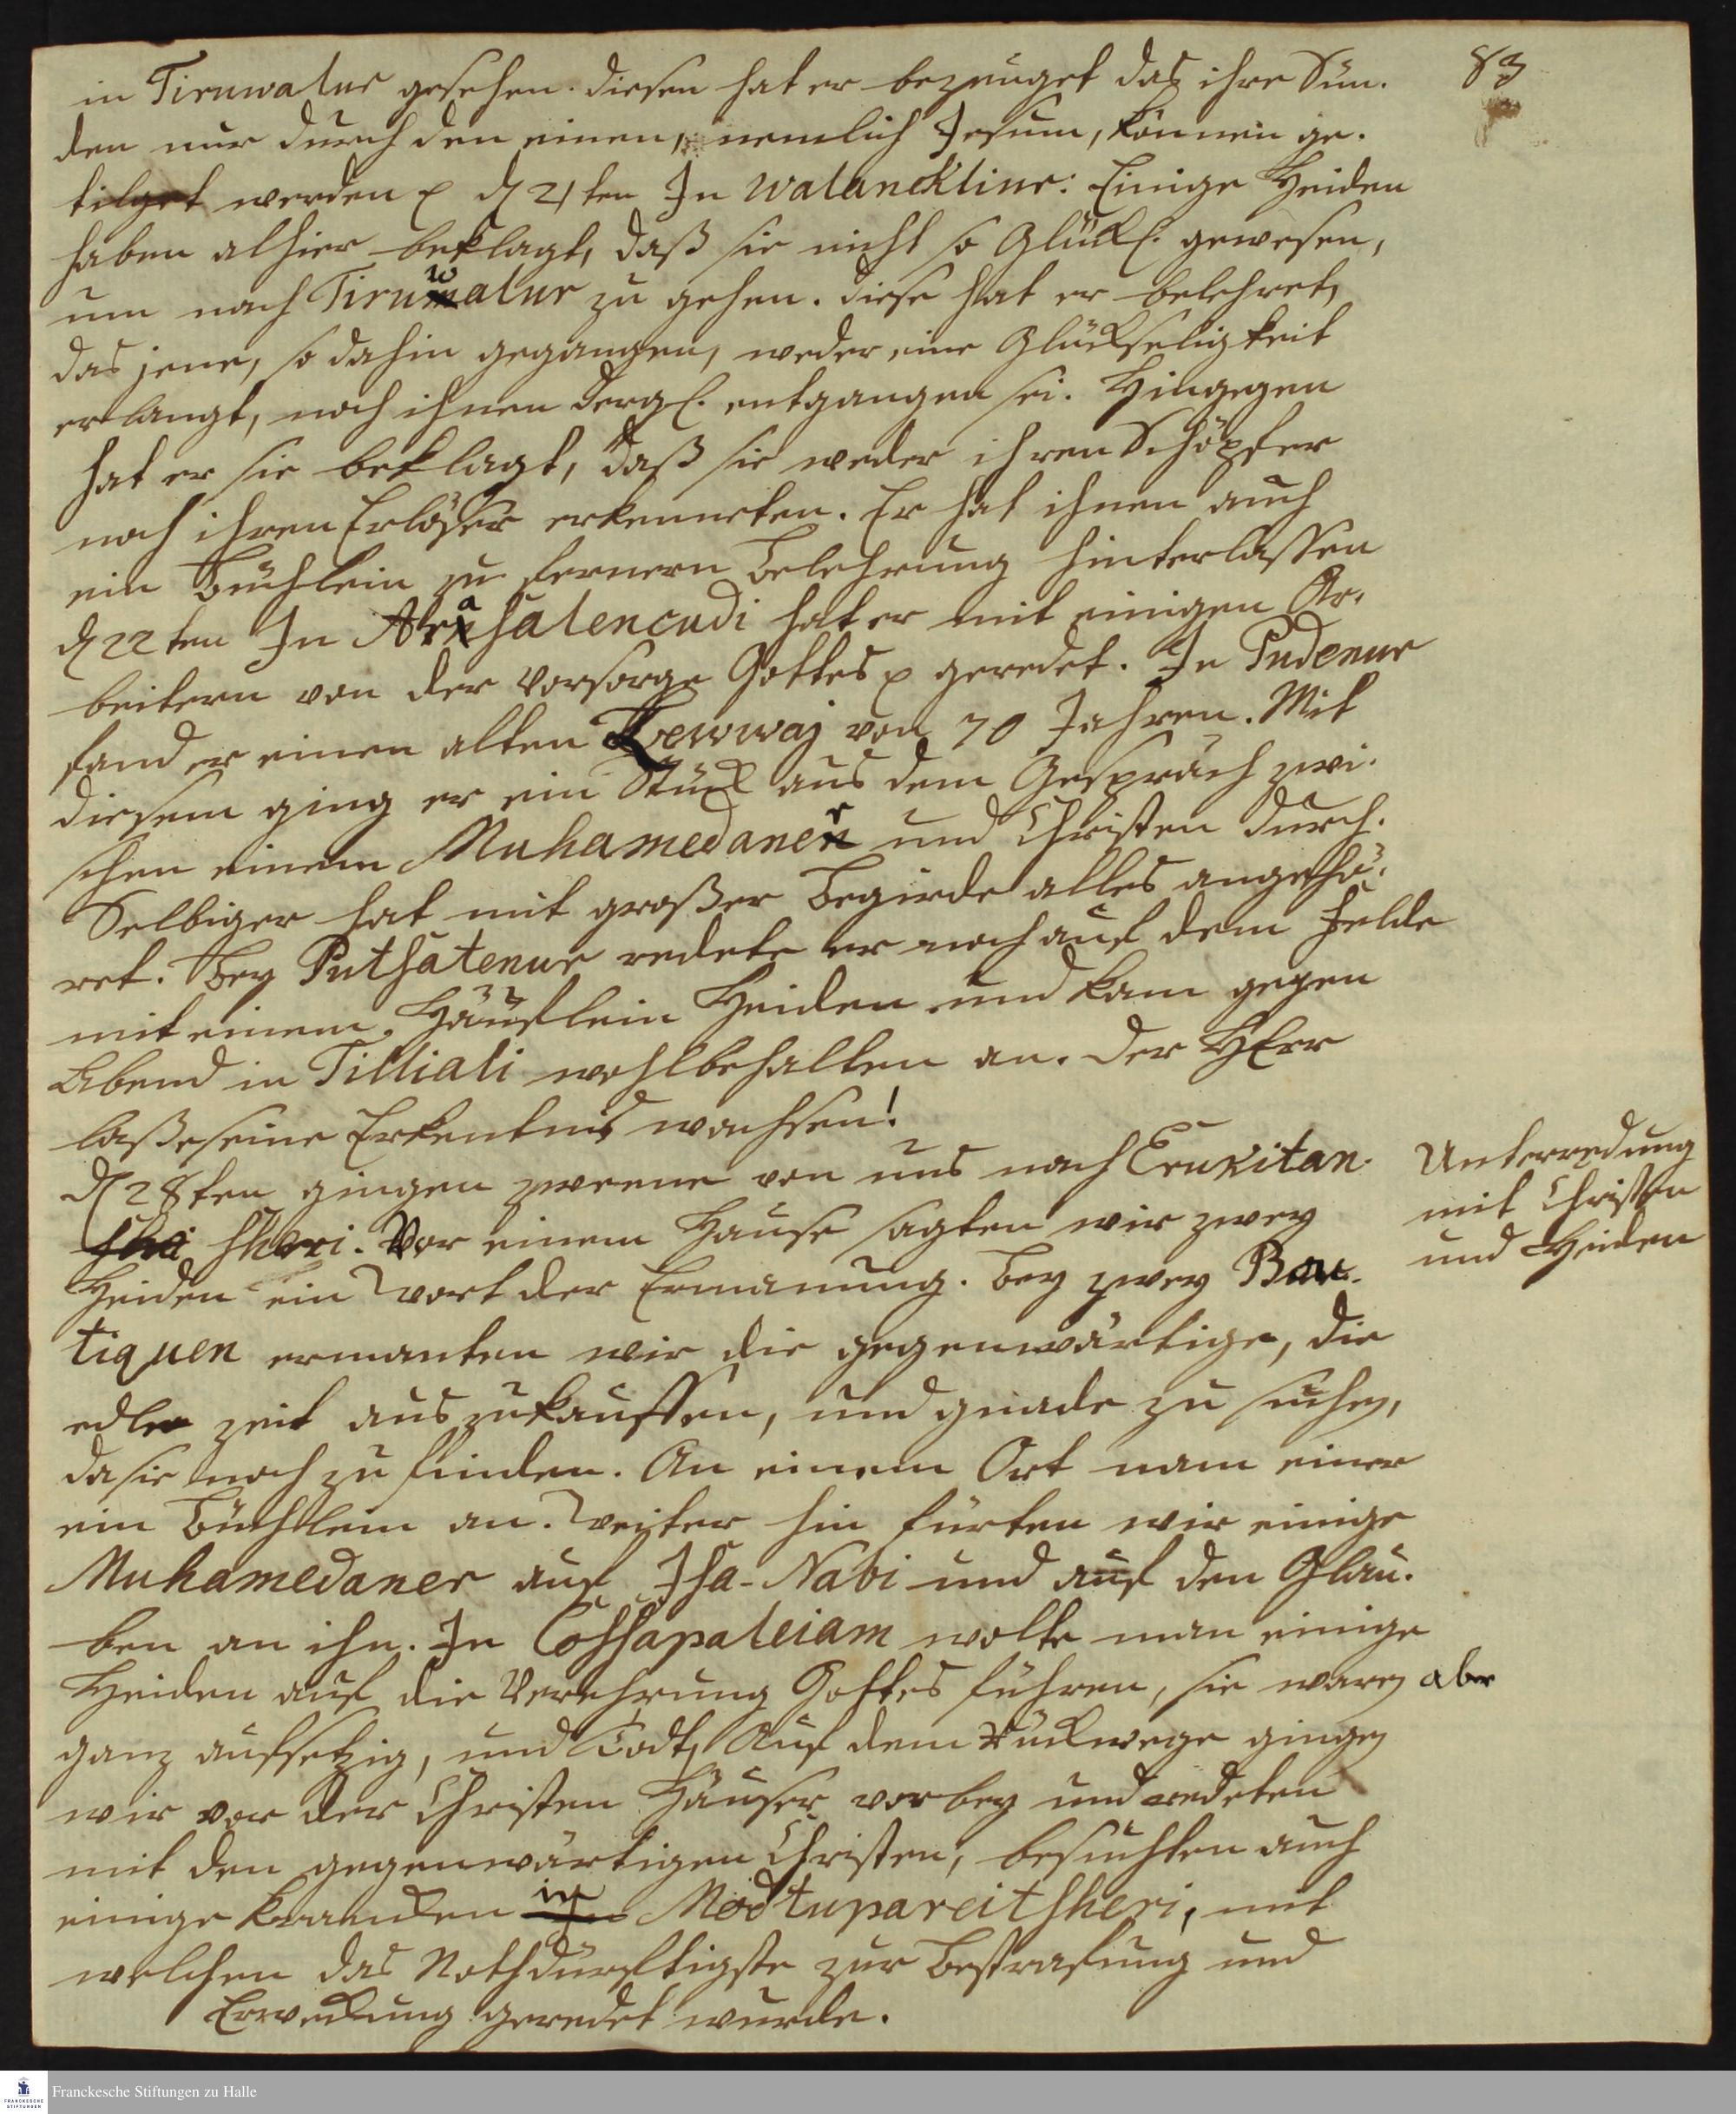 83
in Tiruwalur gesehen. diesen hat er bezeuget das ihre Sün-
den nur durch den einen, nemlich Jesum, können ge-
tilget werden p d 21ten In Walanckliur: Einige Heiden
haben alhier beklagt, daß sie nicht so Glückl. gewesen,
um nach Tiruwalur zu gehen. diese hat er belehret,
das jene, so dahin gegangen, weder eine Glückseligkeit
erlangt, noch ihnen dergl. entgangen sei. Hingegen
hat er sie beklagt, daß sie weder ihren Schöpfer
noch ihren Erlöser erkenneten. Er hat ihnen auch
ein Büchlein zu fernern Belehrung hinterlassen
d 22ten In Arasalencudi hat er mit einigen Ar-
beitern von der Vorsorge Gottes p geredet. In Pudenur
fand er einen alten Lewwaj von 70 Jahren. Mit
diesem ging er ein Stück aus dem Gespräch zwi-
schen einem Muhamedaner und Christen durch.
Selbiger hat mit großer Begierde alles angehö-
ret. Bey Putsatenur redete er noch auf dem Felde
mit einem Häuflein Heiden und kam gegen
Abend in Tilliali wohlbehalten an. der HErr
laße seine Erkentnis wachsen!
d 28ten gingen zweene von uns nach Erukitan-
sheri. Vor einem Hause sagten wir zwey
Heiden ein Wort der Ermanung. Bey zwey Bou-
tiquen ermanten wir die gegenwärtige, die
edle zeit auszukauffen, und gnade zu suchen,
da sie noch zu finden. An einem Ort nam einer
ein Büchlein an. Weiter hin fürten wir einige
Muhamedaner auf Isa-Nabi und auf den Glau-
ben an ihn. In Cossapaleiam wolte man einige
Heiden auf die Verehrung Gottes führen, sie waren aber
ganz aufsetzig, und Todt, Auf dem Rückwege gingen
wir vor der Christen Häuser vorbey und redeten
mit den gegenwärtigen Christen, besuchten auch
einige Krancken in Modtupareitsheri, mit
welchen das Nothdürftigste zur Bestrafung und
Erweckung geredet wurde.
Unterredung
mit Christen
und Heiden
Franckesche Stiftungen zu Halle